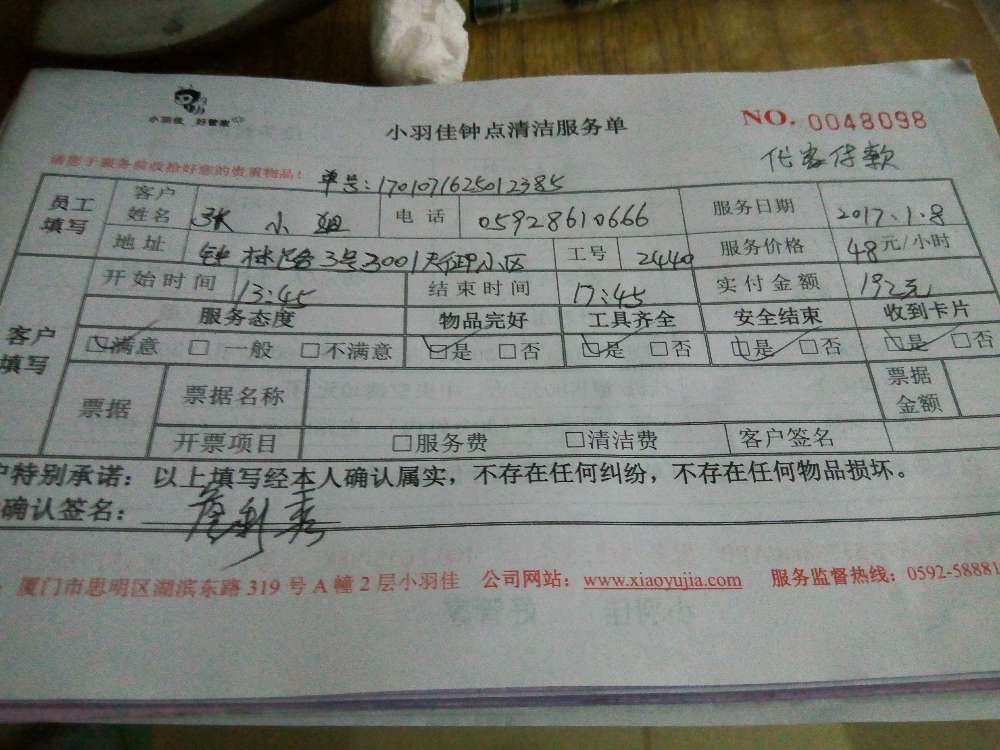 小羽佳 好管家
小羽佳钟点清洁服务单
NO. 0048098
代客付款
请您于服务前收拾好您的贵重物品！
单号:1701071625012385
员工填写 客户姓名 张小姐 电话 05928610666 服务日期 2017.1.8
地址 钟林路3号3001天御小区 工号 2440 服务价格 48元/小时
客户填写 开始时间 13:45 结束时间 17:45 实付金额 192元
服务态度 物品完好 工具齐全 安全结束 收到卡片
☑满意 □一般 □不满意 ☑是 □否 ☑是 □否 ☑是 □否 ☑是 □否
票据 票据名称 票据金额
开票项目 □服务费 □清洁费 客户签名
户特别承诺：以上填写经本人确认属实，不存在任何纠纷，不存在任何物品损坏。
确认签名：
厦门市思明区湖滨东路319号A幢2层小羽佳 公司网站：www.xiaoyujia.com 服务监督热线：0592-58881